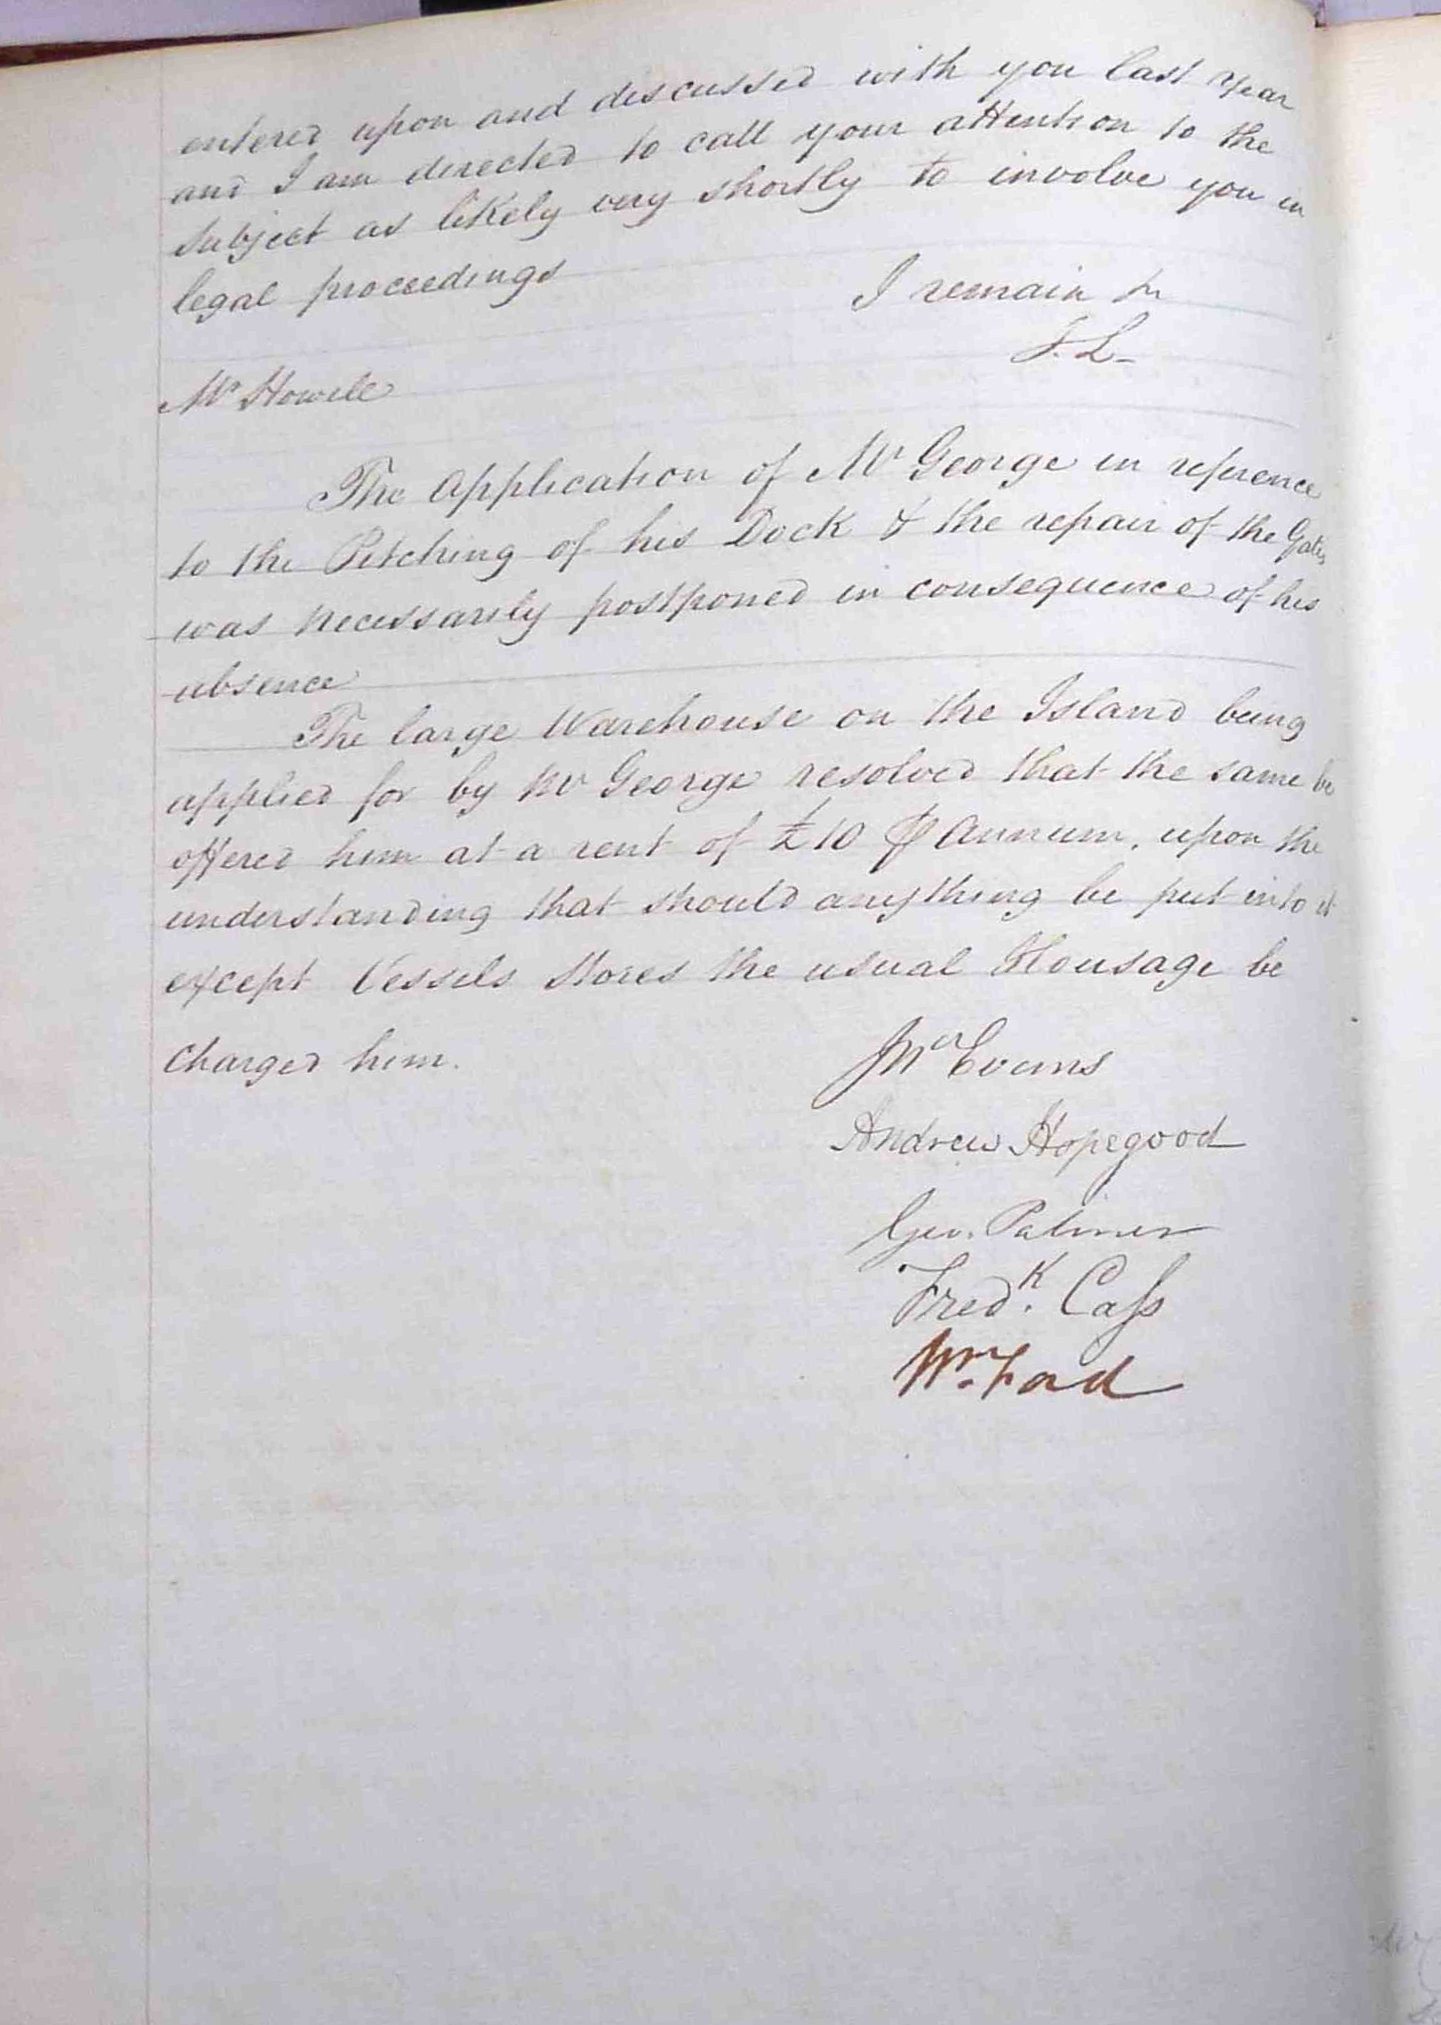 entered upon and discussed with you last year
and I am directed to call your attention to the
subject as likely very shortly to involve you in
legal proceedings
I remain
J. L.
Mr Howell
The Application of Mr George in reference
to the Pitching of his Dock & the repair of the Gates
was necessarily postponed in consequence of his
absence
The large Warehouse on the Island being
applied for by Mr George resolved that the same be
offered him at a rent of £10 ⅌ Annum, upon the
understanding that should anything be put into it
except Vessels Stores the usual Housage be
charged him.
Jno Evans
Andrew Hopegood
Geo. Palmer
Fredk. Cass
Wm. Ford